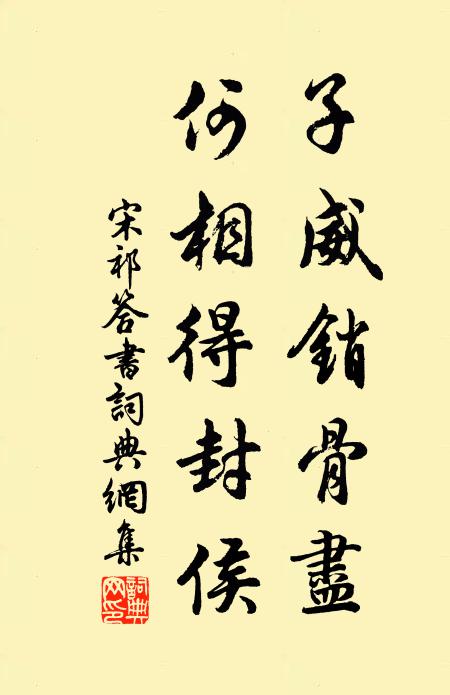 子威銷骨盡
何相得封侯
宋祁答書詞典網集
詞典网印